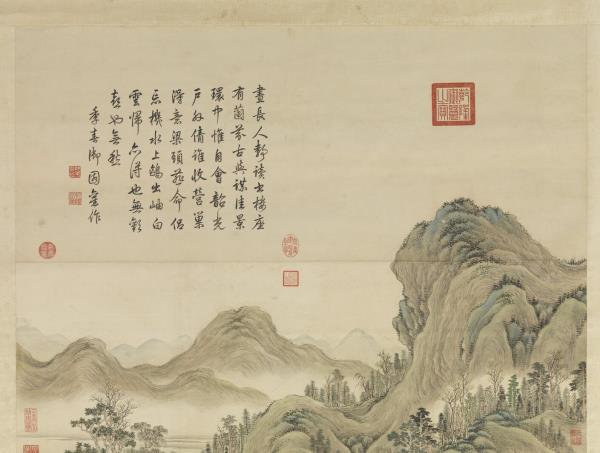 晝長人靜讀書樓座
有蘭芬古與謀佳景
環中惟自會韶光
戶外倩誰收營巢
得意梁頭燕命侶
忘機水上鷗出岫白
雲歸亦得也無歡
喜也無愁
季春御園作